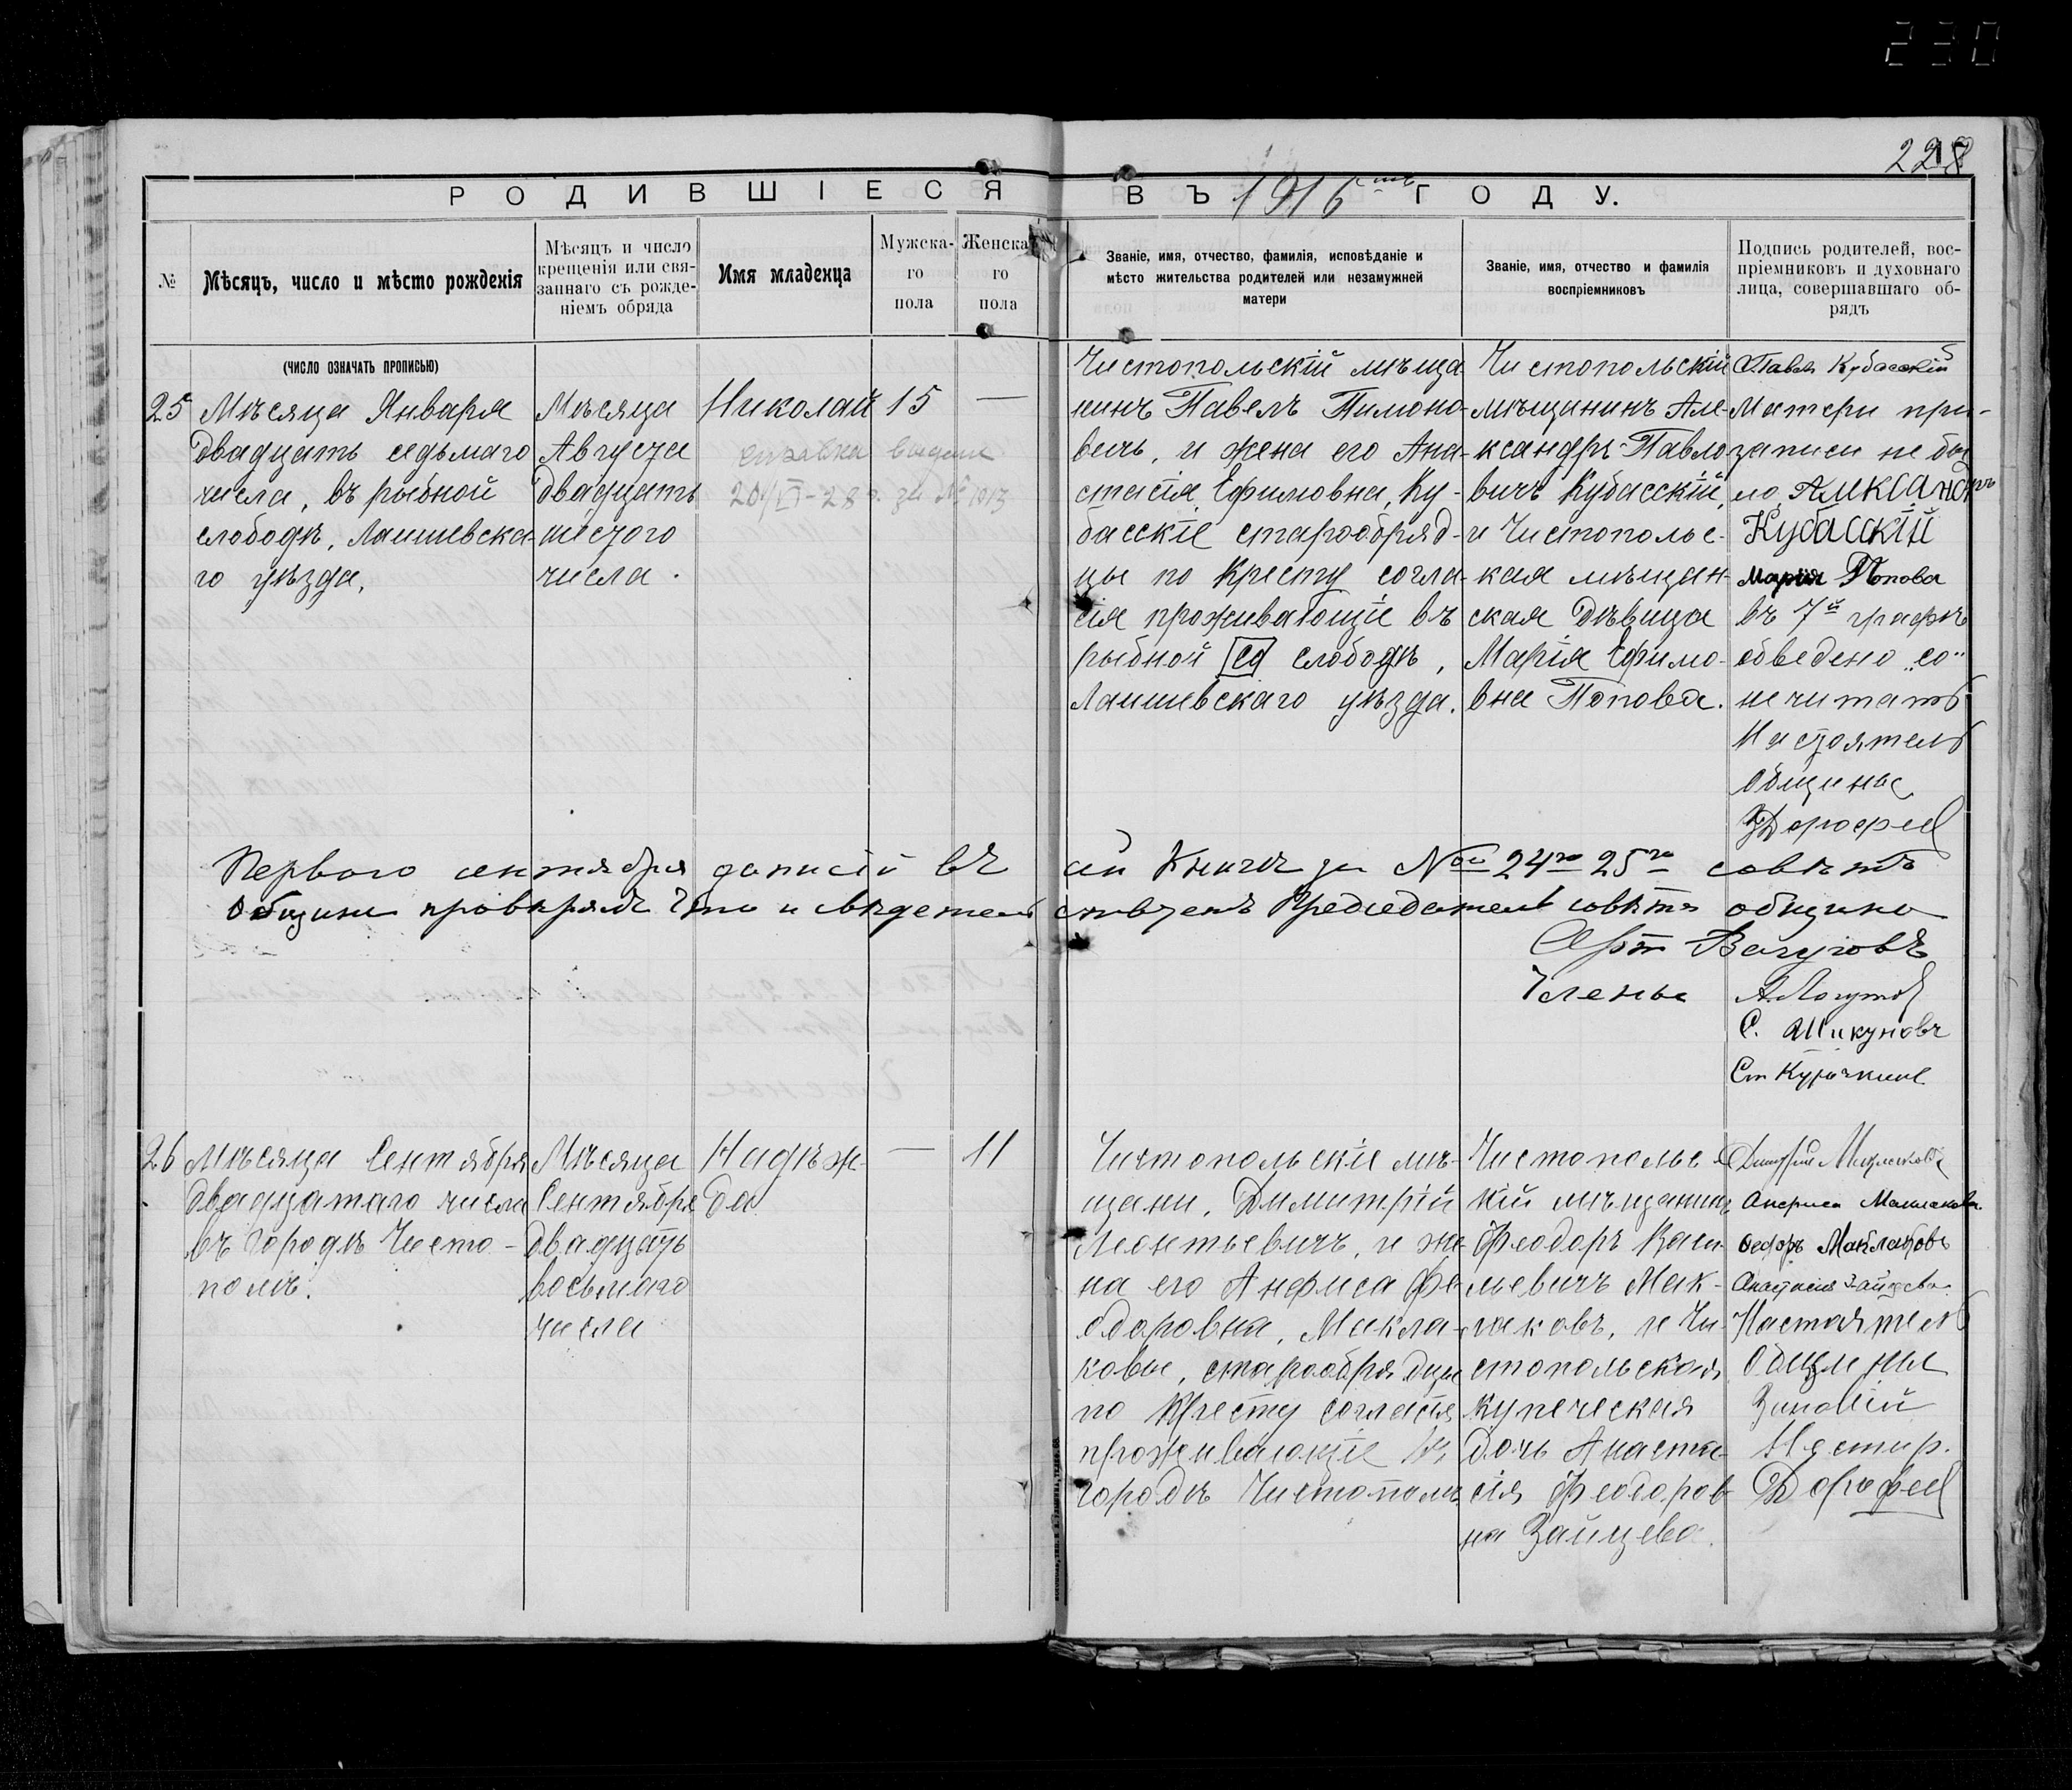 230
228
РОДИВШІЕСЯ ВЪ 1916 ГОДУ.
№
Мѣсяцъ, число и мѣсто рожденія
Мѣсяцъ и число
крещенія или свя-
заннаго съ рожде-
ніемъ обряда
Имя младенца
Мужска-
го
пола
Женска
го
пола
Званіе, имя, отчество, фамилія, исповѣданіе и
мѣсто жительства родителей или незамужней
матери
Званіе, имя, отчество и фамилія
воспріемниковъ
Подпись родителей, вос-
пріемниковъ и духовнаго
лица, совершавшаго об-
рядъ
(ЧИСЛО ОЗНАЧАТЬ ПРОПИСЬЮ)
25
Мѣсяца Января
двадцать седьмаго
числа, въ рыбной
слободѣ, Лаишевска-
го уѣзда.
Мѣсяца
Августа
двадцать
шестого
числа.
Николай
справка выдана
20/VI-28 г. за № 1013
15
—
Чистопольскій мѣща
нинъ Павелъ Тимоно-
вичъ, и жена его Ана-
стасія Ефимовна, Ку-
басскіе старообряд-
цы по Кресту согла-
сія проживающіе въ
рыбной со слободѣ,
Лаишевскаго уѣзда.
Чистопольскій
мѣщанинъ Але-
ксандръ Павло
вичъ Кубасскій,
и Чистопольс-
кая мѣщан-
ская Дѣвица
Марія Ефимо-
вна Попова.
Павелъ Кубасскій
Матери при-
записи не бы
ло, Александръ
Кубасскій
Марія Попова
въ 7й графѣ
обведено „со"
не читать
Настоятель
Общины
З Дорофеев
Перваго сентября записи въ сей Книге за № 24го 25го совѣтъ
Общины проверялъ Что и свидетельствуетъ Председатель совѣта общины
Арт Валуговъ
Члены А. Логутов
С. Шикуновъ
Ст Курочкинъ
26
Мѣсяца Сентября
двадцатаго числа
въ Городѣ Чисто-
полѣ.
Мѣсяца
Сентября
двадцать
восьмаго
числа
Надѣж-
да
—
11
Чистопольскіе мѣ-
щани, Димитрій
Леонтьевичъ, и же-
на его Анфиса Фе-
одоровна, Макла-
ковы, старообрядцы
по Кресту согласія
проживающіе въ
городѣ Чистополѣ
Чистопольс
кій мѣщанинъ
Феодоръ Васи-
льевичъ Мак-
лаковъ, и Чи-
стопольская
купеческая
дочь Анаста-
сія Феодоров-
на Зайцева.
Дмитрій Маклаковъ
Анфиса Маклакова
Федоръ Маклаковъ
Анастасія Зайцева
Настоятель
Общины
Зиновій
Нестир.
Дорофеев